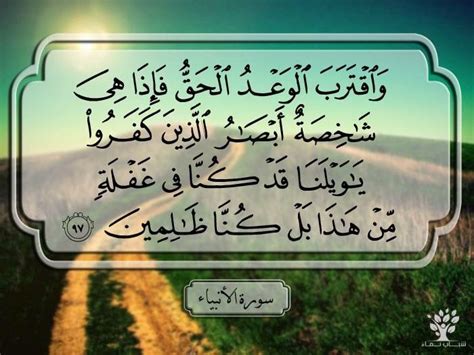 وَٱقۡتَرَبَ ٱلۡوَعۡدُ ٱلۡحَقُّ فَإِذَا هِيَ
شَٰخِصَةٌ أَبۡصَٰرُ ٱلَّذِينَ كَفَرُواْ
يَٰوَيۡلَنَا قَدۡ كُنَّا فِي غَفۡلَةٖ
مِّنۡ هَٰذَا بَلۡ كُنَّا ظَٰلِمِينَ ٩٧
سورة الأنبياء
شباب نماء